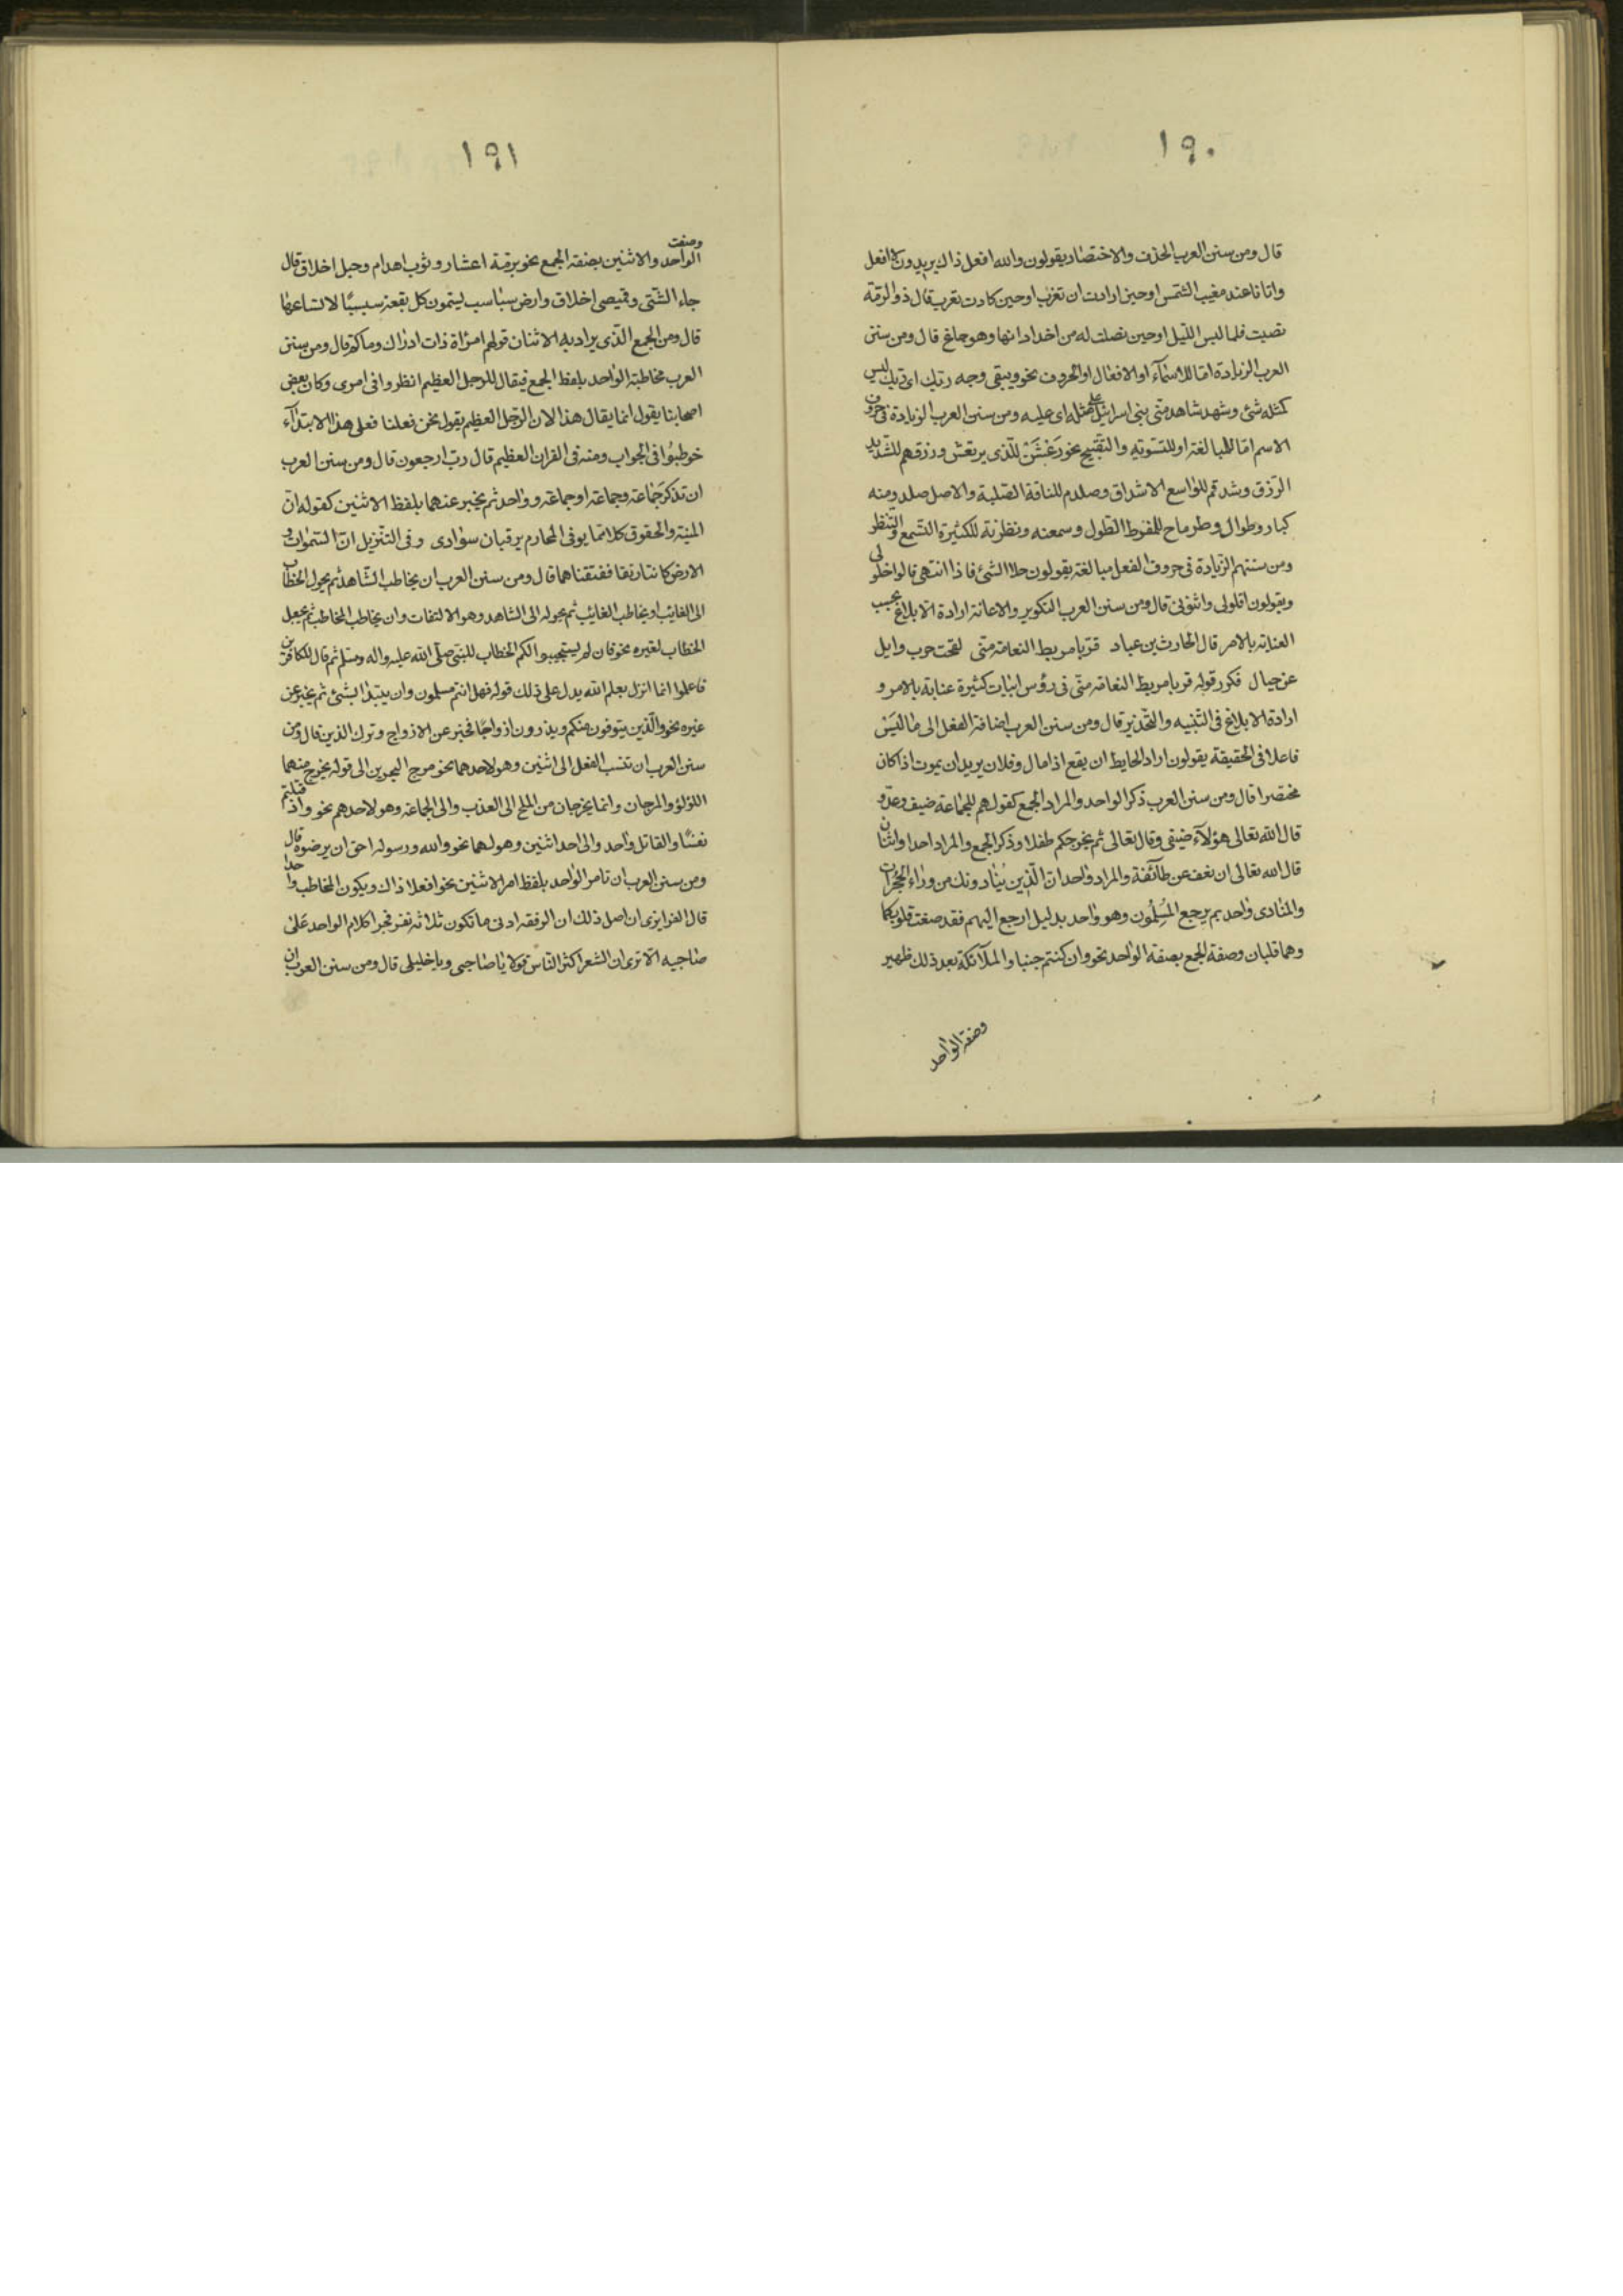 ١٩٠
قال ومن سنن العرب الحذف والاختصار يقولون والله افعل ذاك يريدون لا افعل
واتانا عند مغيب الشمس او حين ارادت ان تغرب او حين كادت تغرب قال ذو الرمة
فلما لبس الليل او حين نصبت له من اخدا اذانها وهو جانح قال ومن سنن
العرب الزيادة اما للاسماء او الافعال او الحروف نحو ويبقى وجه ربك اى ربك ليس
كمثله شئ وشهد شاهد من بنى اسرائيل على مثله اى عليه ومن سنن العرب الزيادة فى حروف
الاسم اما للمبالغة او للتسوية والتقبيح نحو رَعْشَنْ للذى يرتعش وزرقم للشديد
الزرق وشدقم للواسع الاشداق وصلدم للناقة الصلبة والاصل صلد ومنه
كبار وطوال وطرماح للمفرط الطول وسمعنه ونظرنة للكثيرة التسمع والتنظر
ومن سننهم الزيادة فى حروف الفعل مبالغة يقولون حلا الشئ فاذا انتهى قالوا احلولى
ويقولون اقلولى واثنونى قال ومن سنن العرب التكرير والاعادة ارادة الابلاغ بحسب
العناية بالامر قال الحارث بن عباد قربا مربط النعامة منى لقحت حرب وايل
عن حيال فكرر قوله قربا مربط النعامة منى فى رؤس ابيات كثيرة عناية بالامر و
ارادة الابلاغ فى التنبيه والتحذير قال ومن سنن العرب اضافة الفعل الى ما ليس
فاعلا فى الحقيقة يقولون اراد الحايط ان يقع اذا مال وفلان يريد ان يموت اذا كان
محتضرا قال ومن سنن العرب ذكر الواحد والمراد الجمع كقولهم للجماعة ضيف وعدو
قال الله تعالى هؤلاء ضيفى وقال تعالى ثم يخرجكم طفلا وذكر الجمع والمراد احد او اثنان
قال الله تعالى ان نعف عن طائفة والمراد واحد ان الذين ينادونك من وراء الحجرات
والمنادى واحد بم يرجع المُرسلون وهو واحد بدليل ارجع اليهم فقد صغت قلوبكما
وهما قلبان وصفة الجمع بصفة الواحد نحو وان كنتم جنبا والملائكة بعد ذلك ظهير
وصفة الواحد
١٩١
وصفت
الواحد والاثنين بصفة الجمع نحو برمة اعشار وثوب اهدام وحبل اخلاق قال
جاء الشتى وقميصى اخلاق وارض سباسب يسمون كل بقعة سبسبًا لاتساعها
قال ومن الجمع الذى يراد به الاثنان قولهم امراة ذات اوراك وماكم قال ومن سنن
العرب مخاطبة الواحد بلفظ الجمع فيقال للرجل العظيم انظروا فى امرى وكان بعض
اصحابنا يقول انما يقال هذا لان الرجل العظيم يقول نحن فعلنا فعلى هذا الابتداء
خوطبوا فى الجواب ومنه فى القران العظيم قال رب ارجعون قال ومن سنن العرب
ان تذكر جماعة وجماعة او جماعة وواحد ثم يخبر عنهما بلفظ الاثنين كقوله ان
المنية والحقوق كلاهما يوفى المحارم يرقبان سوادى وفى التنزيل ان السموات و
الارض كانتا رتقا ففتقناهما قال ومن سنن العرب ان يخاطب الشاهد ثم يحول الخطاب
الى الغايب او يخاطب الغايب ثم يحوله الى الشاهد وهو الالتفات وان يخاطب المخاطب ثم يجعل
الخطاب لغيره نحو فان لم يستجيبوا لكم الخطاب للنبى صلى الله عليه واله وسلم ثم قال للكافرين
فاعلموا انما انزل بعلم الله يدل على ذلك قوله فهل انتم مسلمون وان يبتدا بشئ ثم يخبر عن
غيره نحو والذين يتوفون منكم ويذرون ازواجًا فخبر عن الازواج وترك الذين قال ومن
سنن العرب ان تنسب الفعل الى اثنين وهو لاحدهما نحو مرج البحرين الى قوله يخرج منهما
اللؤلؤ والمرجان وانما يخرجان من الملح لا العذب والى الجماعة وهو لاحدهم نحو واذ قتلتم
نفسًا والقاتل واحد والى احد اثنين وهو لهما نحو والله ورسوله احق ان يرضوه قال
ومن سنن العرب ان تامر الواحد بلفظ امر الاثنين نحو افعلا ذاك ويكون المخاطب واحدا
قال الفرا يرى ان اصل ذلك ان الرفقة ادنى ما تكون ثلاثة نفر فجرا كلام الواحد على
صاحبيه الا ترى ان الشعرا كثر الناس قولا يا صاحبى ويا خليلى قال ومن سنن العرب ان